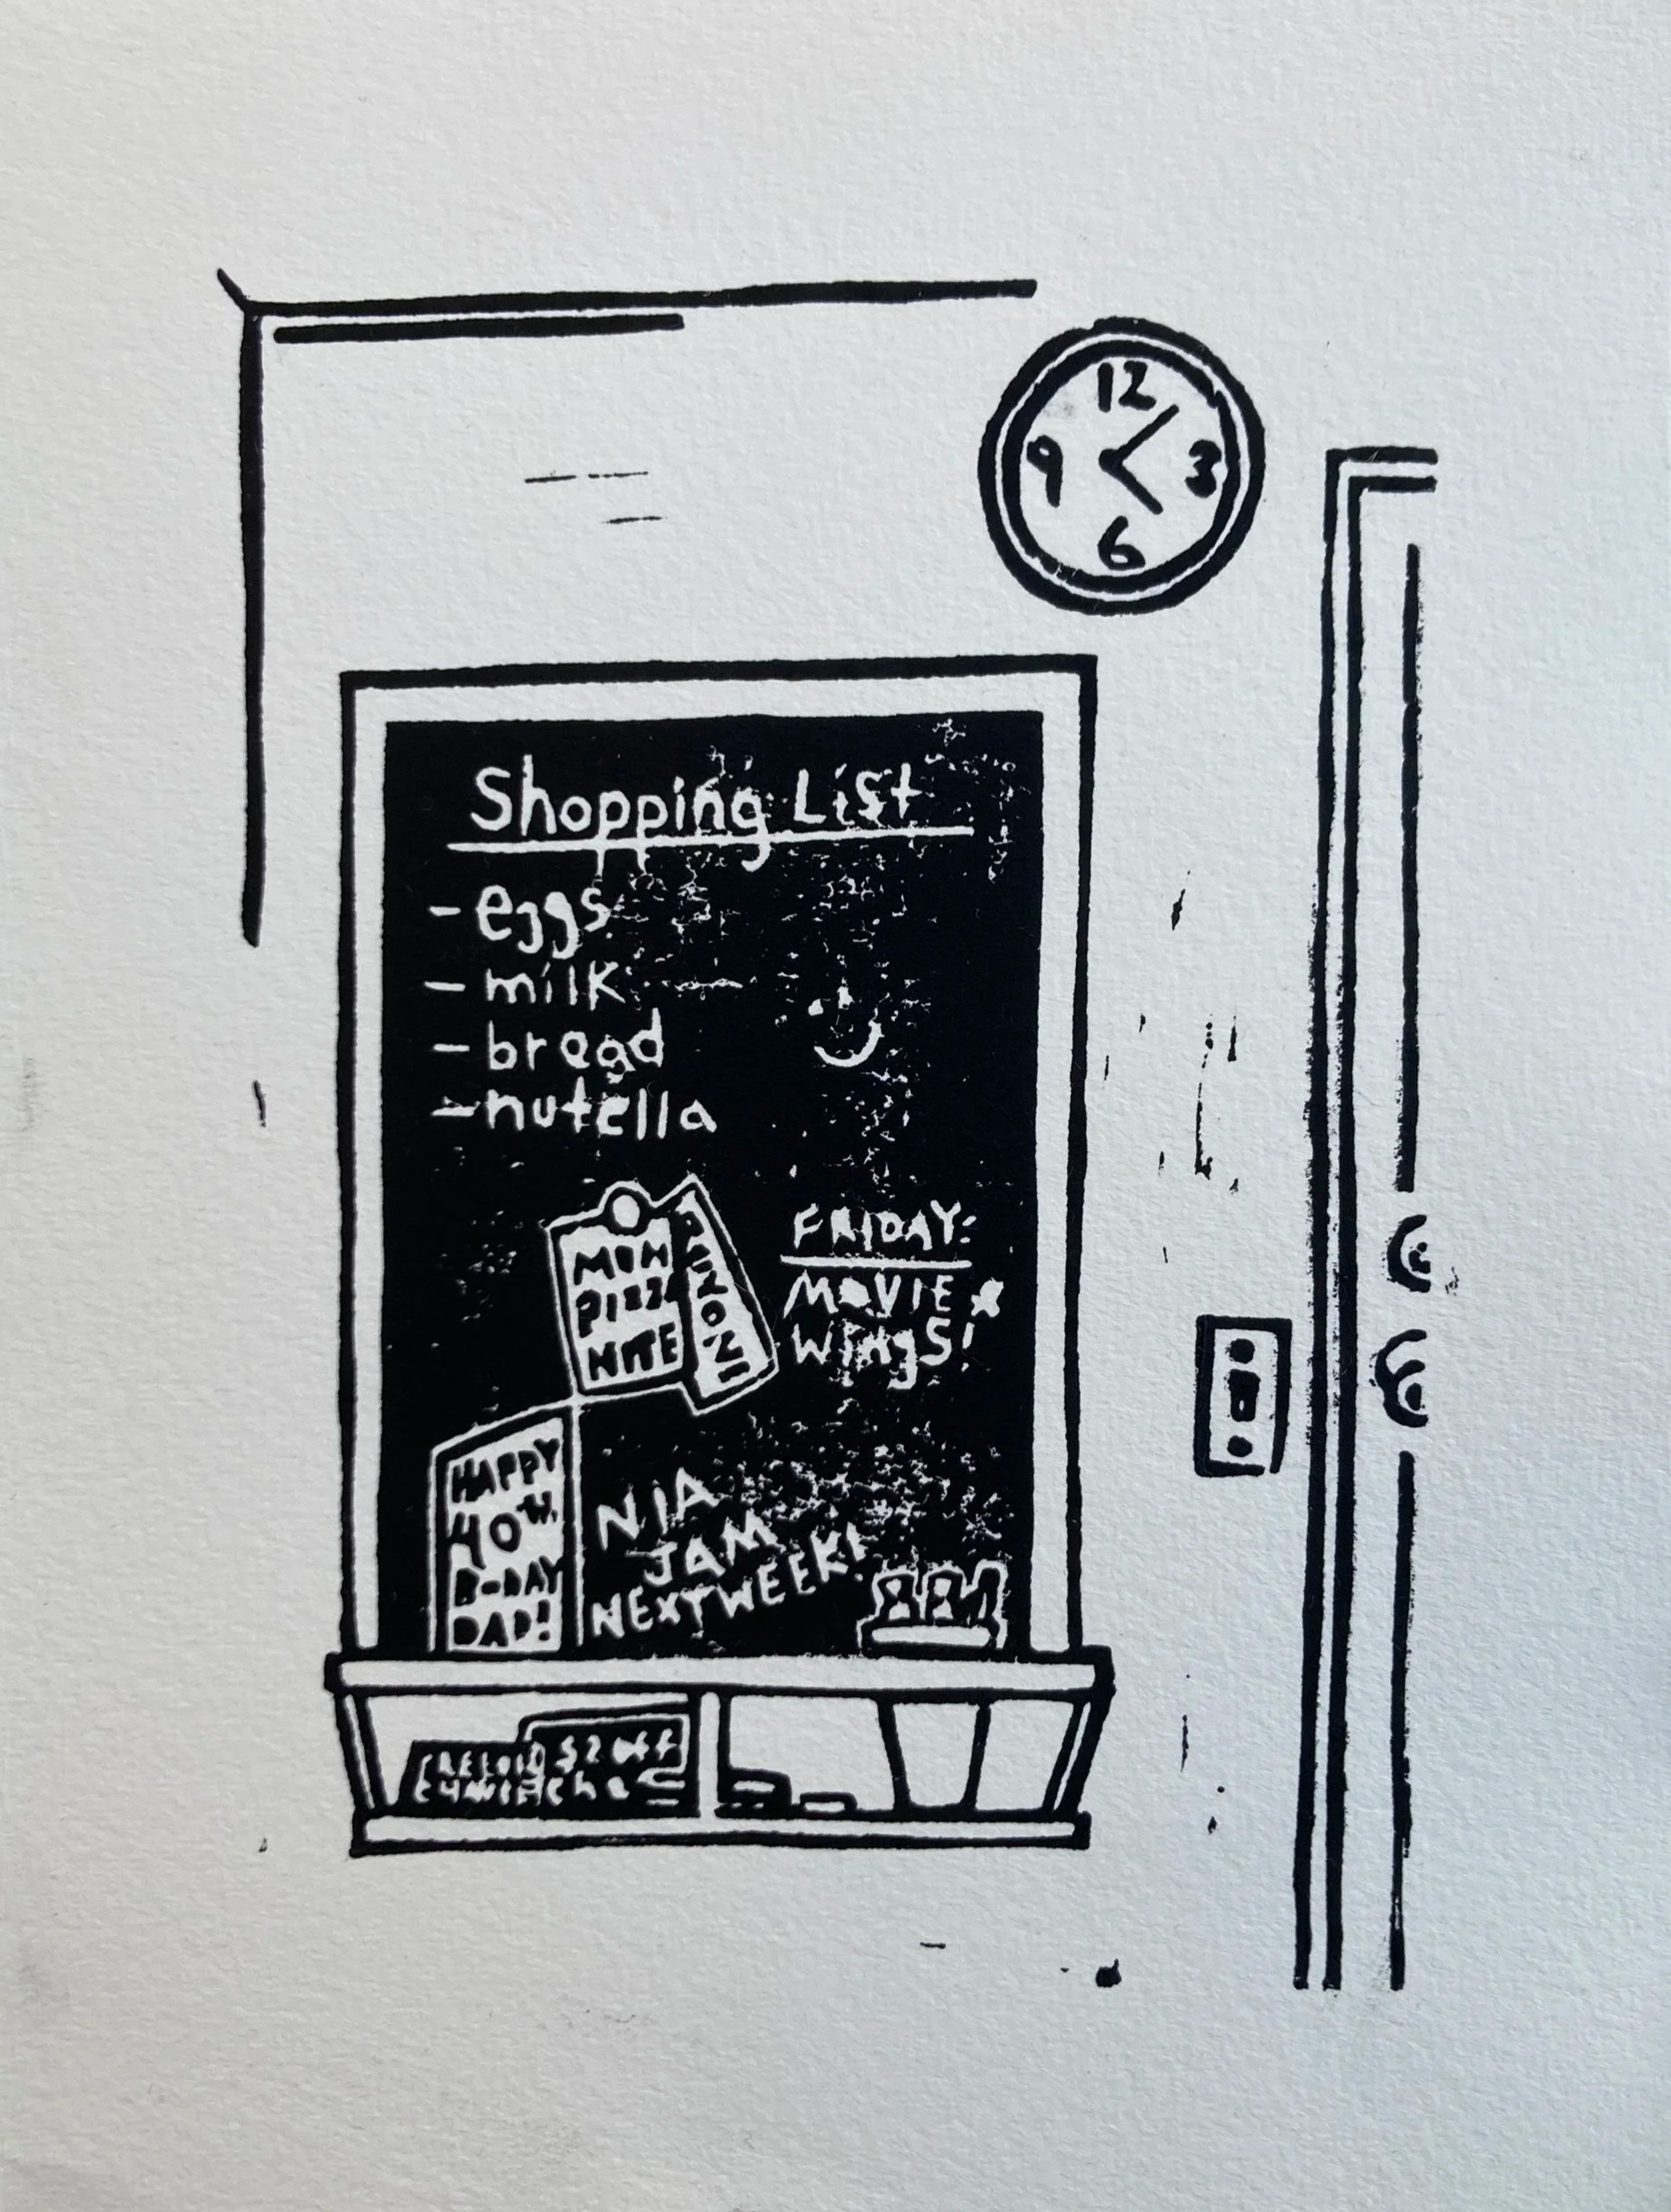 12
9 3
6
Shopping List
- eggs
- milk
- bread
- nutella
MON
PIZZ
NITE
FRIDAY:
MOVIE &
WingS!
HAPPY
40TH
B-DAY
DAD!
NIA
JAM
NEXT WEEK!
$2 off